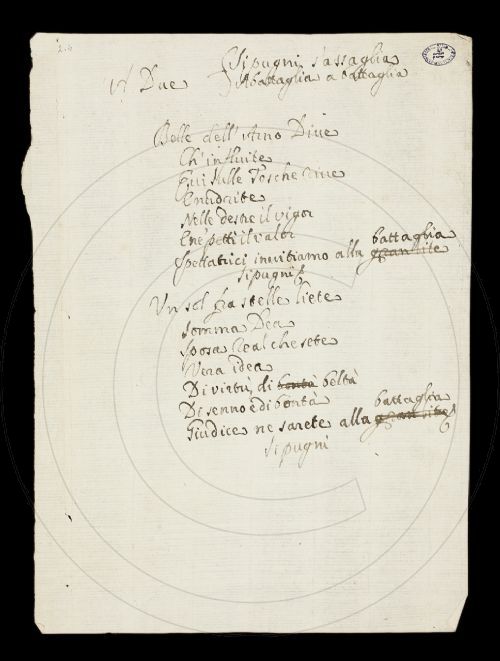 Si pugni, s'assaglia
A Due
A battaglia a battaglia
Belle dell'Arno Dive
Ch'influite
Qui sulle Tosche rive
E nudrite
Nelle destre il vigor
E ne' petti il valor
battaglia
Spettatrici invitiamo alla gran lite
si pugni
Un sol fra stelle liete
somma Dea
sposa Real che sete
Vera idea
Di virtù, di bontà beltà
Di senno e di bontà
battaglia
Giudice ne sarete alla gran lite
si pugni